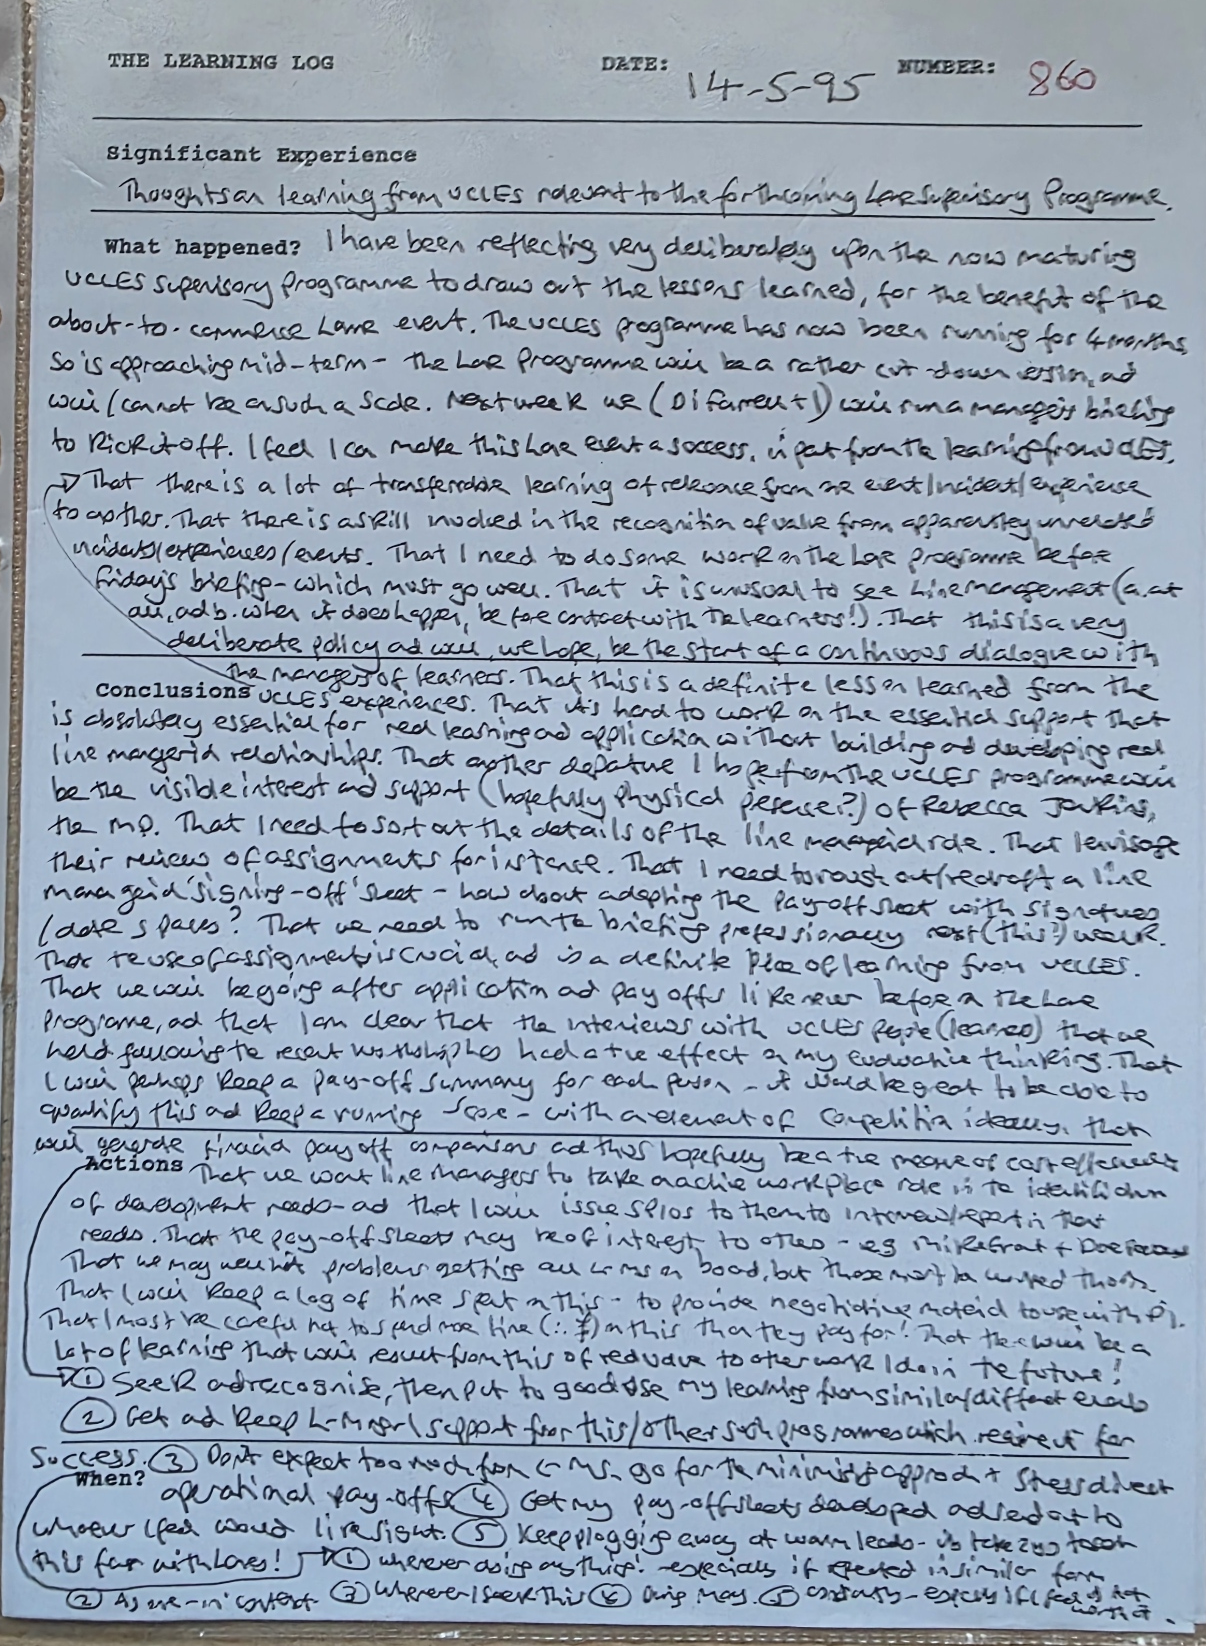 THE LEARNING LOG DATE: 14-5-95 NUMBER: 860
Significant Experience
Thoughts on learning from UCLES relevant to the forthcoming Supervisory Programme.
What happened? I have been reflecting very deliberately upon the now maturing
UCLES Supervisory Programme to draw out the lessons learned, for the benefit of the
about-to-commence event. The UCLES programme has now been running for 4 months,
so is approaching mid-term - the Programme will be a rather cut-down version, and
will/cannot be on such a scale. Next week we (Di Farrell + I) will run a managers briefing
to kick it off. I feel I can make this event a success, in part from the learning from UCLES.
That there is a lot of transferrable learning of relevance from one event/incident/experience
to another. That there is a skill involved in the recognition of value from apparently unrelated
incidents/experiences/events. That I need to do some work on the programme before
Friday's briefing - which must go well. That it is unusual to see Line management (a. at
all, and b. when it does happen, before contact with the learners!). That this is a very
deliberate policy and will, we hope, be the start of a continuous dialogue with
the managers of learners. That this is a definite lesson learned from the
Conclusions UCLES experiences. That it's hard to work on the essential support that
is absolutely essential for real learning and application without building and developing real
line managerial relationships. That another departure I hope from the UCLES programme will
be the visible interest and support (hopefully physical presence?) of Rebecca Jenkins,
the MD. That I need to sort out the details of the line managerial role. That I envisage
their review of assignments for instance. That I need to rout out/redraft a line
managerial 'signing-off' sheet - how about adapting the pay-off sheet with signatures
/date spaces? That we need to run the briefing professionally next (this?) week.
That the use of assignments is crucial, and is a definite piece of learning from UCLES.
That we will be going after application and pay offs like never before on the
Programme, and that I am clear that the interviews with UCLES people (learners) that we
held following the recent workshop has had a +ve effect on my evaluative thinking. That
I will perhaps keep a pay-off summary for each person - it would be great to be able to
quantify this and keep a running score - with an element of competition ideally, that
will generate financial pay off comparisons and thus hopefully be a true measure of cost effectiveness
Actions That we want line managers to take an active workplace role in the identification
of development needs - and that I will issue to them to interview/report in their
needs. That the pay-off sheets may be of interest to others - eg Mike Frost +
That we may well hit problems getting all L-ms on board, but those must be worked through.
That I will keep a log of time spent on this - to provide negotiating material to use with Di.
That I must be careful not to spend more time (∴ £) on this than they pay for! That there will be a
lot of learning that will result from this of red value to other work I do in the future!
① Seek and recognise, then put to good use my learning from similar/different events
② Get and keep L-Mngrl support from this/other such programmes which require it for
success. ③ Don't expect too much from L-Ms, go for the minimist approach + stress direct
When? operational pay-offs ④ Get my pay-off sheets developed and sent out to
whoever I feel would like sight. ⑤ Keep plogging away at warm leads - it's taken 2 yrs to reach
this far with ! ① whenever doing anything! - especially if repeated in similar form
② As one - in context ③ Whenever I seek this ④ During May. ⑤ constantly - especially if I feel it's not
worth it.